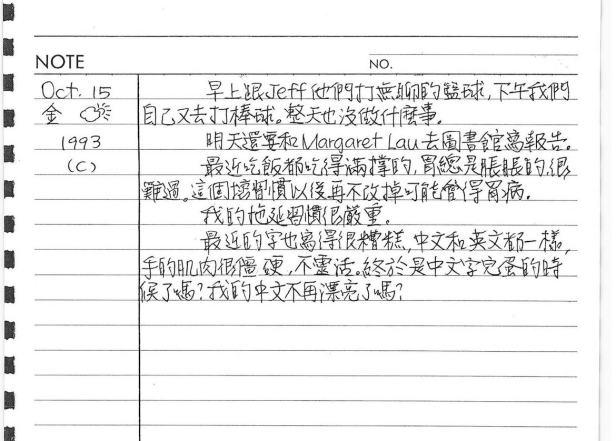 NOTE NO.
Oct. 15 早上跟Jeff他們打無聊的籃球,下午我們
金 自己又去打棒球。整天也沒做什麼事。
1993 明天還要和Margaret Lau去圖書館寫報告。
(C) 最近吃飯都吃得滿撐的,胃總是脹脹的很
難過。這個壞習慣以後再不改掉可能會得胃病。
我的拖延習慣很嚴重。
最近的字也寫得很糟糕,中文和英文都一樣,
手的肌肉很僵硬,不靈活。終於是中文字完蛋的時
候了嗎?我的中文不再漂亮了嗎?